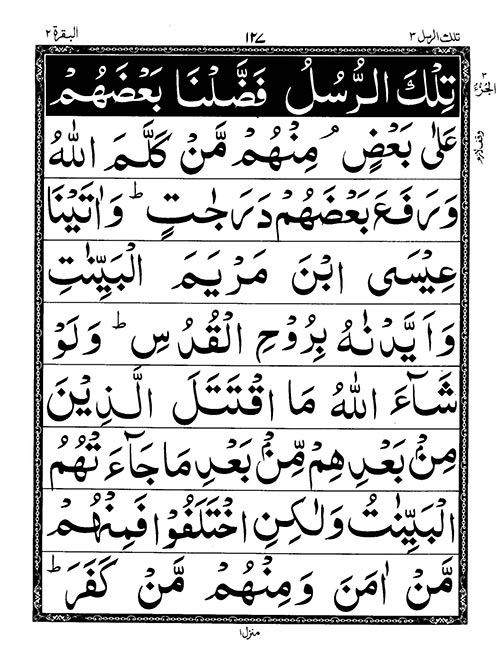 تلك الرسل ٣ ١٢٧ البقرة ٢
تِلْكَ الرُّسُلُ فَضَّلْنَا بَعْضَهُمْ
٣
الجزء
عَلٰى بَعْضٍ ۘ مِنْهُمْ مَّنْ كَلَّمَ اللّٰهُ
وقف لازم
وَرَفَعَ بَعْضَهُمْ دَرَجٰتٍ ؕ وَاٰتَيْنَا
عِيْسَى ابْنَ مَرْيَمَ الْبَيِّنٰتِ
وَاَيَّدْنٰهُ بِرُوْحِ الْقُدُسِ ؕ وَلَوْ
شَآءَ اللّٰهُ مَا اقْتَتَلَ الَّذِيْنَ
مِنْۢ بَعْدِهِمْ مِّنْۢ بَعْدِ مَا جَآءَتْهُمُ
الْبَيِّنٰتُ وَلٰكِنِ اخْتَلَفُوْا فَمِنْهُمْ
مَّنْ اٰمَنَ وَمِنْهُمْ مَّنْ كَفَرَ ؕ
منزل ١